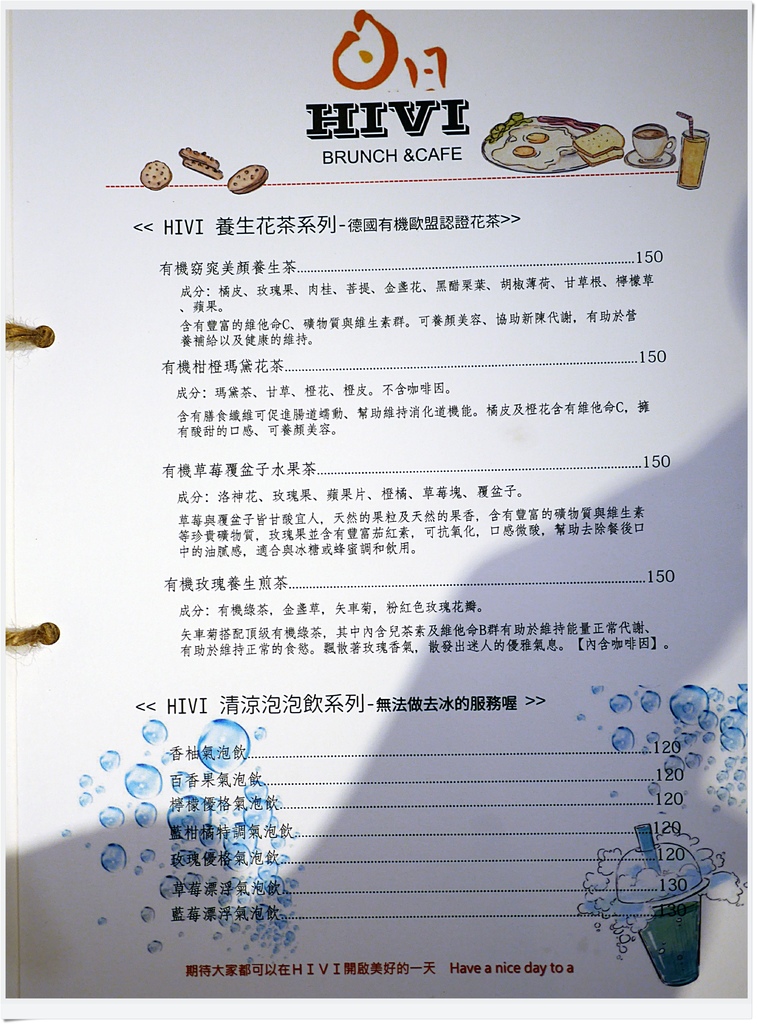 白日
HIVI
BRUNCH &CAFE
<< HIVI 養生花茶系列-德國有機歐盟認證花茶>>
有機窈窕美顏養生茶……150
成分：橘皮、玫瑰果、肉桂、菩提、金盞花、黑醋栗葉、胡椒薄荷、甘草根、檸檬草
、蘋果。
含有豐富的維他命C、礦物質與維生素群。可養顏美容、協助新陳代謝，有助於營
養補給以及健康的維持。
有機柑橙瑪黛花茶……150
成分：瑪黛茶、甘草、橙花、橙皮。不含咖啡因。
含有膳食纖維可促進腸道蠕動、幫助維持消化道機能。橘皮及橙花含有維他命C，擁
有酸甜的口感、可養顏美容。
有機草莓覆盆子水果茶……150
成分：洛神花、玫瑰果、蘋果片、橙橘、草莓塊、覆盆子。
草莓與覆盆子皆甘酸宜人，天然的果粒及天然的果香，含有豐富的礦物質與維生素
等珍貴礦物質，玫瑰果並含有豐富茄紅素，可抗氧化，口感微酸，幫助去除餐後口
中的油膩感，適合與冰糖或蜂蜜調和飲用。
有機玫瑰養生煎茶……150
成分：有機綠茶，金盞草，矢車菊，粉紅色玫瑰花瓣。
矢車菊搭配頂級有機綠茶，其中內含兒茶素及維他命B群有助於維持能量正常代謝、
有助於維持正常的食慾。飄散著玫瑰香氣，散發出迷人的優雅氣息。【內含咖啡因】。
<< HIVI 清涼泡泡飲系列-無法做去冰的服務喔 >>
香柚氣泡飲……120
百香果氣泡飲……120
檸檬優格氣泡飲……120
藍柑橘特調氣泡飲……120
玫瑰優格氣泡飲……120
草莓漂浮氣泡飲……130
藍莓漂浮氣泡飲……130
期待大家都可以在ＨＩＶＩ開啟美好的一天 Have a nice day to a